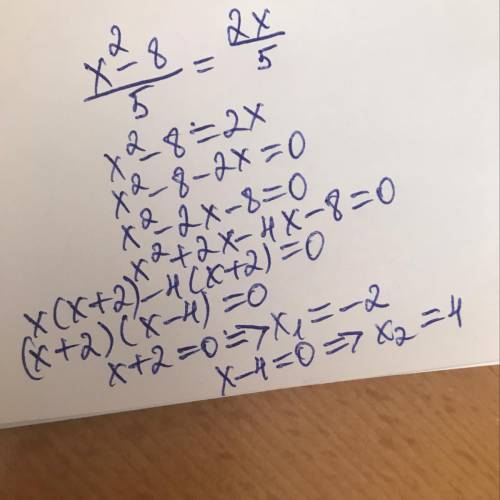 x²-8/5 = 2x/5
x²-8=2x
x²-8-2x=0
x²-2x-8=0
x²+2x-4x-8=0
x(x+2)-4(x+2)=0
(x+2)(x-4)=0
x+2=0 => x₁=-2
x-4=0 => x₂=4